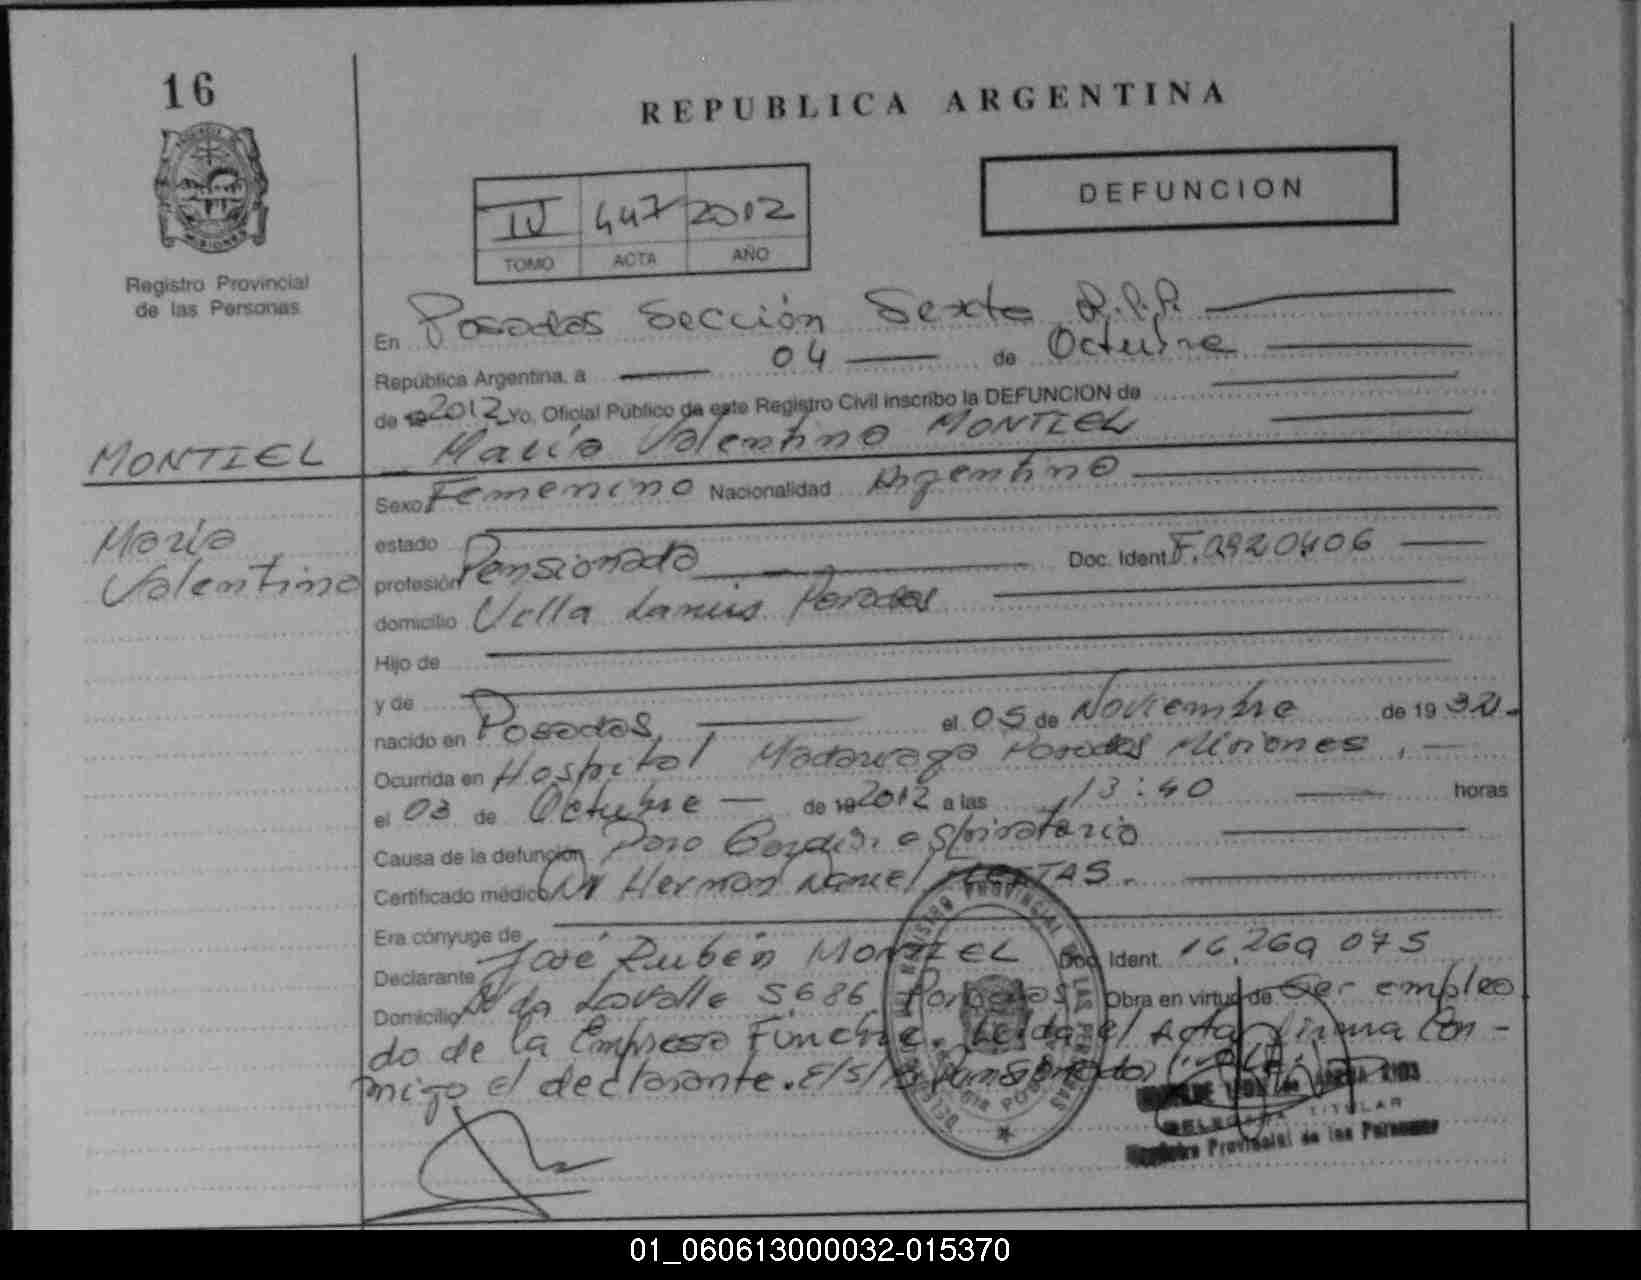 16
REPUBLICA ARGENTINA
DEFUNCION
IV 447 2012
TOMO ACTA AÑO
Registro Provincial
de las Personas
En Posadas Sección Sexta R.P.P.
República Argentina, a 04 de Octubre
de 19 2012 Yo, Oficial Público de este Registro Civil inscribo la DEFUNCION de
María Valentina MONTIEL
MONTIEL
María
Valentina
Sexo Femenino Nacionalidad Argentina
estado
profesión Pensionada Doc. Ident. F.0920406
domicilio Villa Lanús Posadas
Hijo de
y de
nacido en Posadas el 05 de Noviembre de 19 32.
Ocurrida en Hospital Madariaga Posadas Misiones.
el 03 de Octubre de 19 2012 a las 13:40 horas
Causa de la defunción Paro Cardio respiratorio
Certificado médico Dr Hernan Daniel
Era cónyuge de
Declarante José Rubén MONTIEL Doc. Ident. 16.269 075
Domicilio Av da Lavalle 5686 Posadas Obra en virtud de Ser emplea
do de la Empresa Fúnebre. Leida el Acta firma Con-
migo el declarante. E/S/R Pensionada (VALE)
REGISTRO PROVINCIAL DE LAS PERSONAS
TITULAR
Registro Provincial de las Personas
01_060613000032-015370